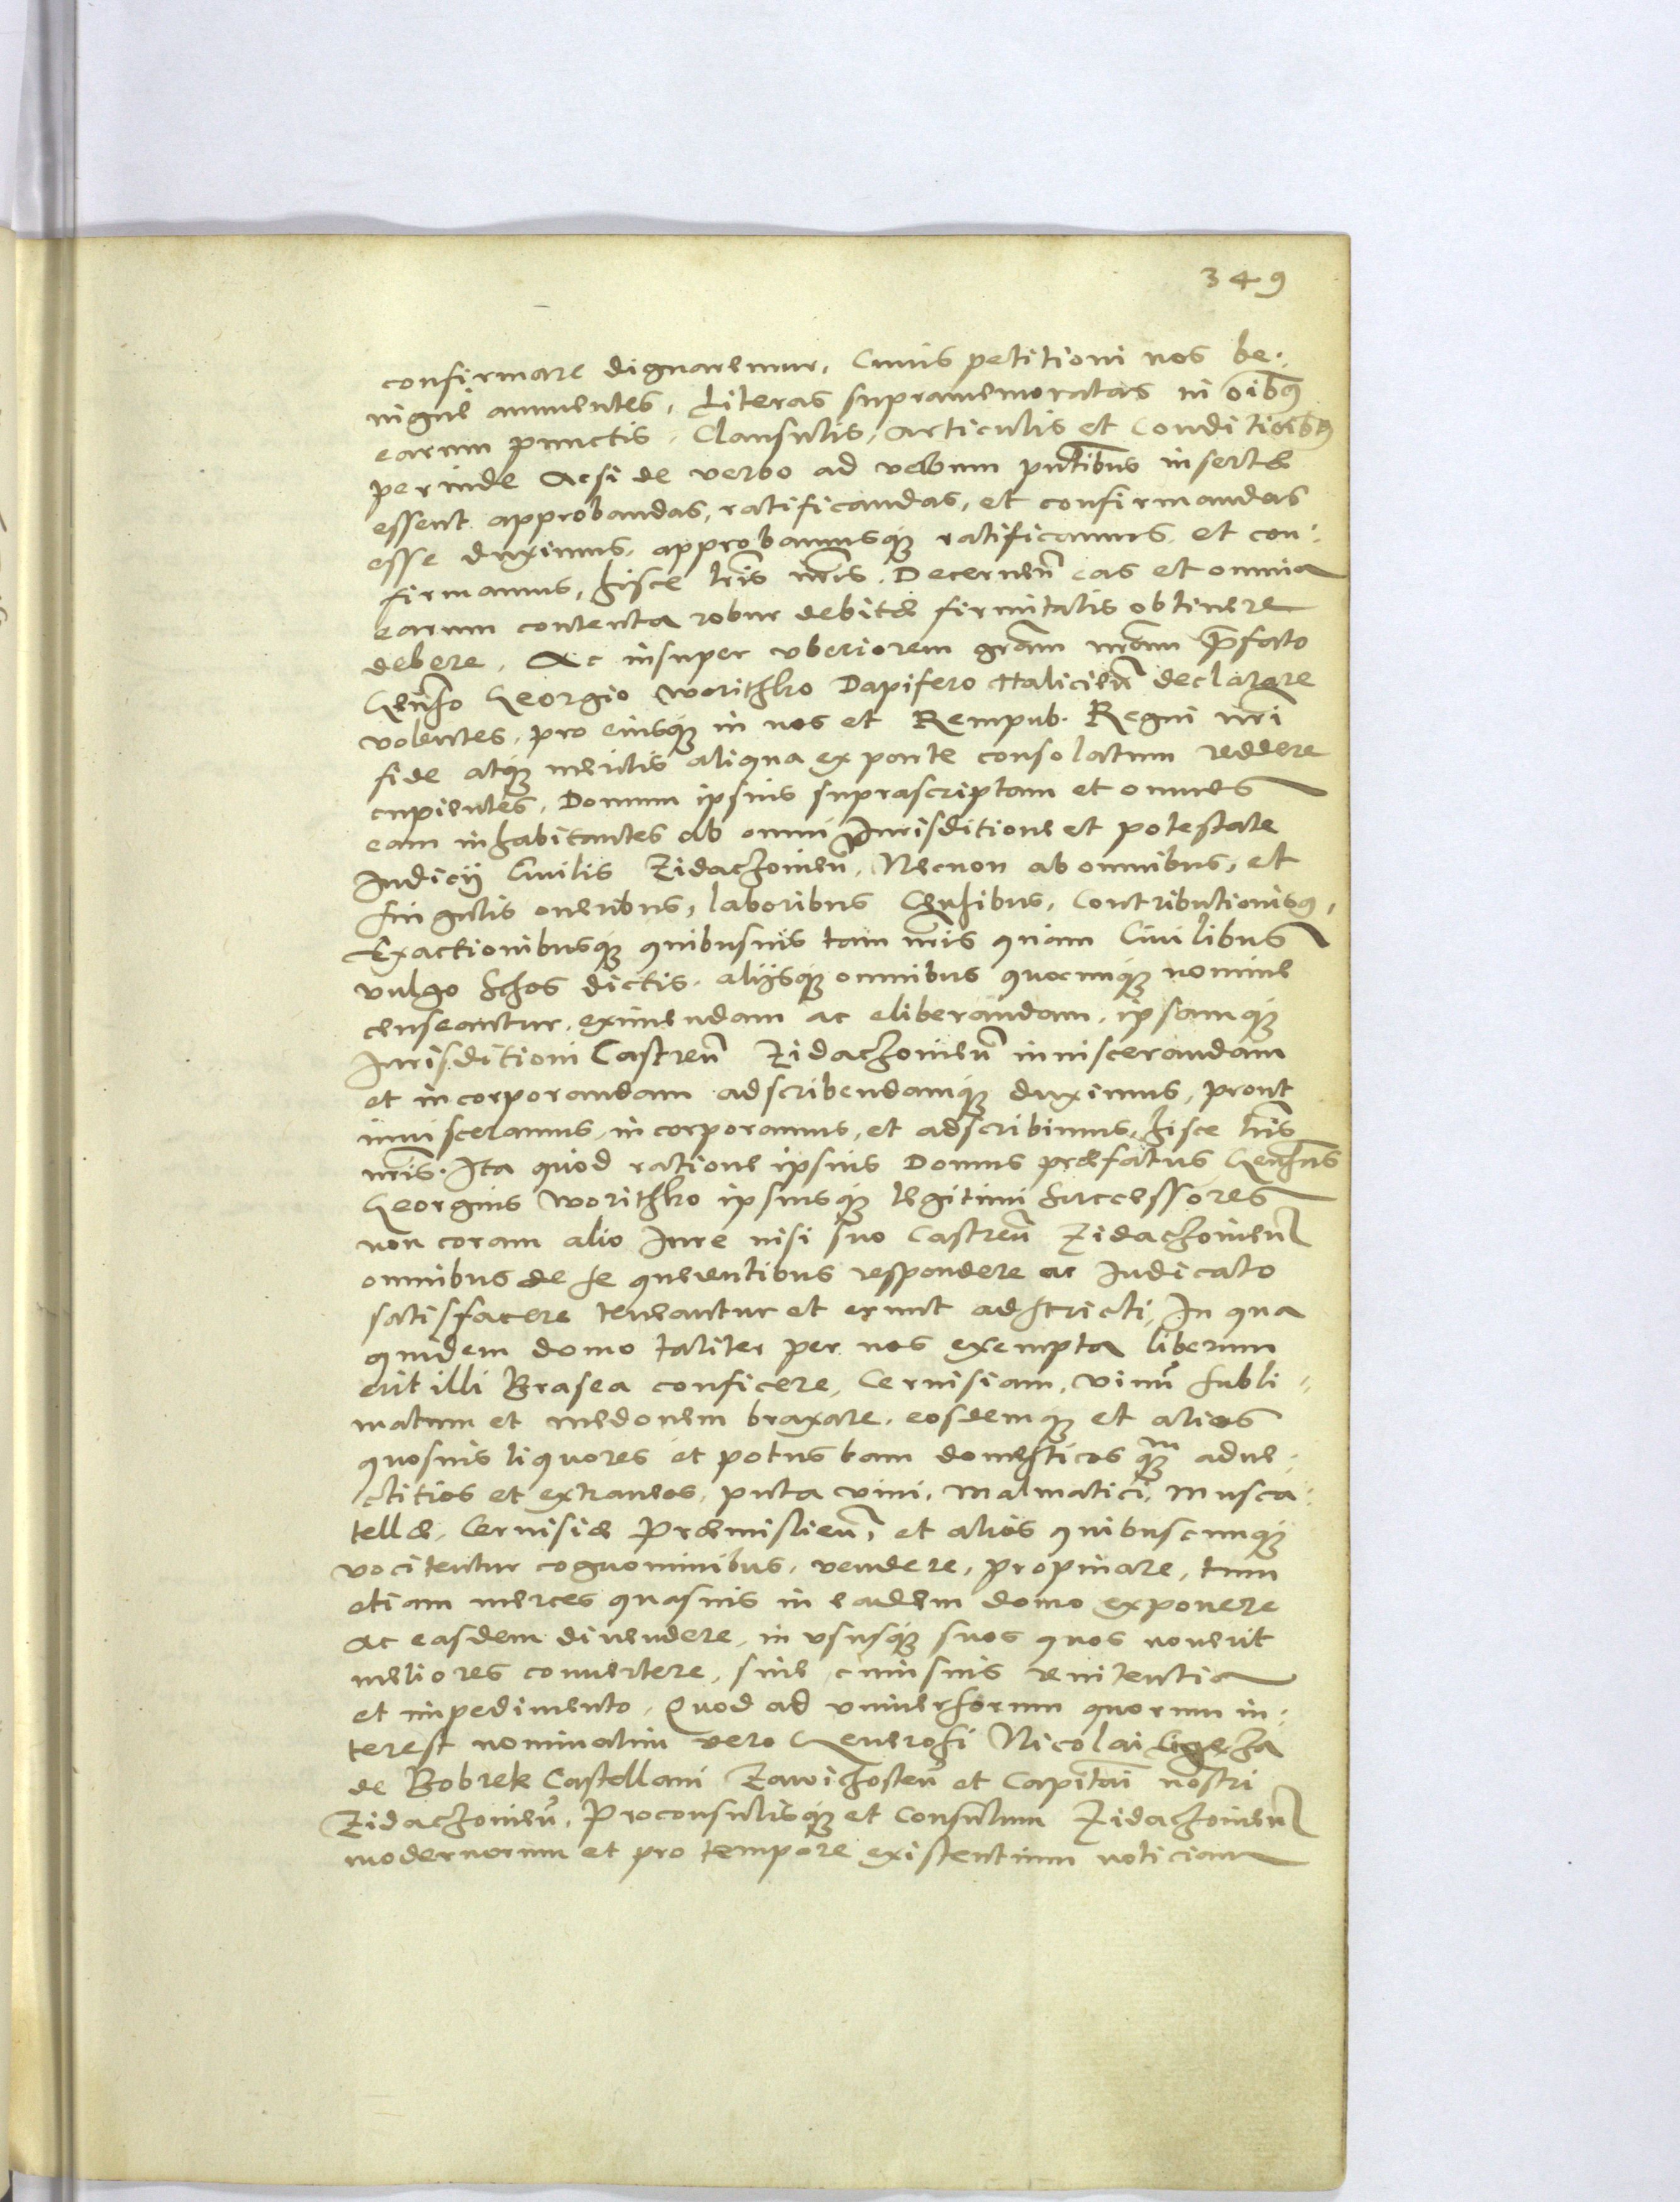 349
confirmare dignaremur, Cuius petitioni nos be:
nigne annuentes, Literas supramemoratas in oibꝰ
earum punctis, Clausulis, articulis et Conditioībꝰ
perinde Acsi de verbo ad verbum pntibus insertæ
essent approbandas, ratificandas, et confirmandas
esse duximus, approbamusq́ꝫ ratificamus et con:
firmamus, hisce lris nris. Decernen̄ eas et omnia
earum contenta robur debitæ firmitatis obtinere
debere. Ac insuper vberiorem grām nrām p̄fato
Gen̄so Georgio Worithko Dapifero Halicien̄ declarare
volentes, pro eiusq́ꝫ in nos et Rempub. Regni nri
fide atq́ꝫ meritis aliqua ex parte consolatum reddere
cupientes, Domum ipsius suprascriptam et omnes
eam inhabitantes ab omni Jurisditione et potestate
Judicij Ciuilis Zidachouien̄, Necnon ab omnibus, et
singulis oneribus, laboribus Censibus, Contributionibꝰ,
Exactionibusq́ꝫ quibusuis tam nris quam Ciuilibus
vulgo Schos dictis, alijsq́ꝫ omnibus quocunq́ꝫ nomine
censeantur, eximendam ac eliberandam, ipsamq́ꝫ
Jurisditioni Castren̄ Zidachouien̄ inuiscerandam
et incorporandam adscribendamq́ꝫ duximus, prout
inuisceramus, incorporamus, et adscribimus, hisce lris
nris. Ita quod ratione ipsius Domus præfatus Gen̄sus
Georgius Worithko ipsiusq́ꝫ legitimi successores
non coram alio Jure nisi suo Castren̄ Zidachouien̄
omnibus de se querentibus respondere ac Judicato
satisfacere teneantur et erunt adstricti, In qua
quidem domo taliter per nos exempta liberum
erit illi Brasea conficere, Ceruisiam, vinū subli:
matum et medonem braxare, eosdemq́ꝫ et alios
quosuis liquores et potus tam domesticos q́ꝫm adue:
ctitios et extraneos, puta vini, Malmatici, Musca:
tellæ, Ceruisiæ Præmislien̄, et alios quibuscunq́ꝫ
vocitentur cognominibus, vendere, propinare, tum
etiam merces quasuis in eadem domo exponere
Ac easdem diuendere, in vsusq́ꝫ suos quos nouerit
meliores conuertere, sine cuiusuis renitentia
et impedimento. Quod ad vniuersorum quorum in:
terest nominatim vero Generosi Nicolai Ligeza
de Bobrek Castellani Zawichosten̄ et Capitan̄ nostri
Zidachouien̄, Proconsulisq́ꝫ et Consulum Zidachouien̄
modernorum et pro tempore existentium noticiam